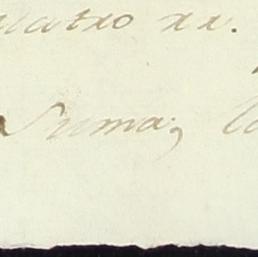 quatro xx.
Suma;